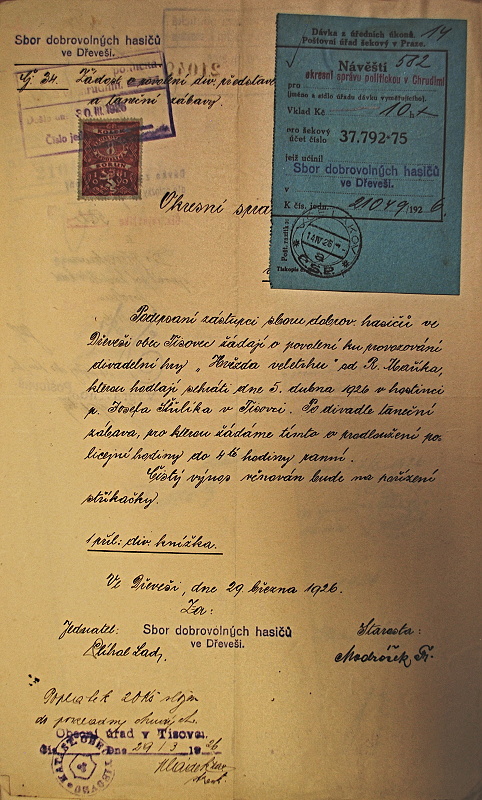 Sbor dobrovolných hasičů
ve Dřeveši.
Dávka z úředních úkonů. 14
Poštovní úřad šekový v Praze.
Návěští 582
okresní správu politickou v Chrudimi
pro
jméno a sídlo úřadu dávku vyměřujícího.
Vklad Kč 10 h
pro šekový
účet číslo 37.792-75
jejž učinil
Sbor dobrovolných hasičů
ve Dřeveši.
v
K čís. jedn. 21049/1926.
14.IV.26
ČSP
Čj 24. Žádost o povolení div. představ
a taneční zábavy.
30.III.1926
Číslo
Okresní sprá
Podepsaní zástupci sboru dobrov. hasičů ve
Dřeveši obec Tisovec žádají o povolení ku provozování
divadelní hry „Hvězda veletrhu" od R. Maříka,
kterou hodlají sehráti dne 5. dubna 1926 v hostinci
p. Josefa Šulika v Tisovci. Po divadle taneční
zábava, pro kterou žádáme tímto o prodloužení po-
licejní hodiny do 4té hodiny ranní.
Čistý výnos věnován bude na pořízení
stříkačky.
1 příl: div. knížka.
Ve Dřeveši, dne 29 března 1926.
Za:
Jednatel: Sbor dobrovolných hasičů Starosta:
ve Dřeveši.
Poplatek 20 Kč složen
do pokladny
Obecní úřad v Tisovci
Čís. Dne 29/3 1926